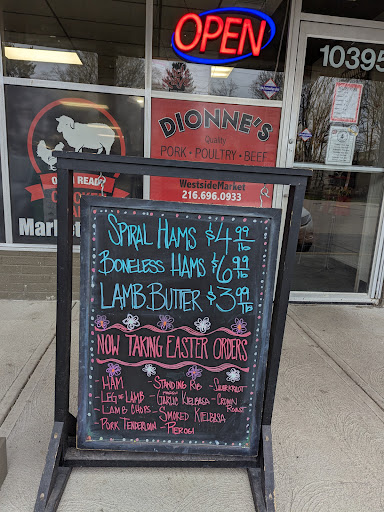 OPEN
10395
DIONNE'S
Quality
PORK · POULTRY · BEEF
WestsideMarket
216.696.0933
SPIRAL HAMS $4.99 lb
BONELESS HAMS $6.99 lb
LAMB BUTTER $3.99 lb
NOW TAKING EASTER ORDERS
- HAM
- LEG OF LAMB
- LAMB CHOPS
- PORK TENDERLOIN
- STANDING RIB
- GARLIC KIELBASA
- SMOKED KIELBASA
- PIEROGI
- SAUERKRAUT
- CROWN ROAST